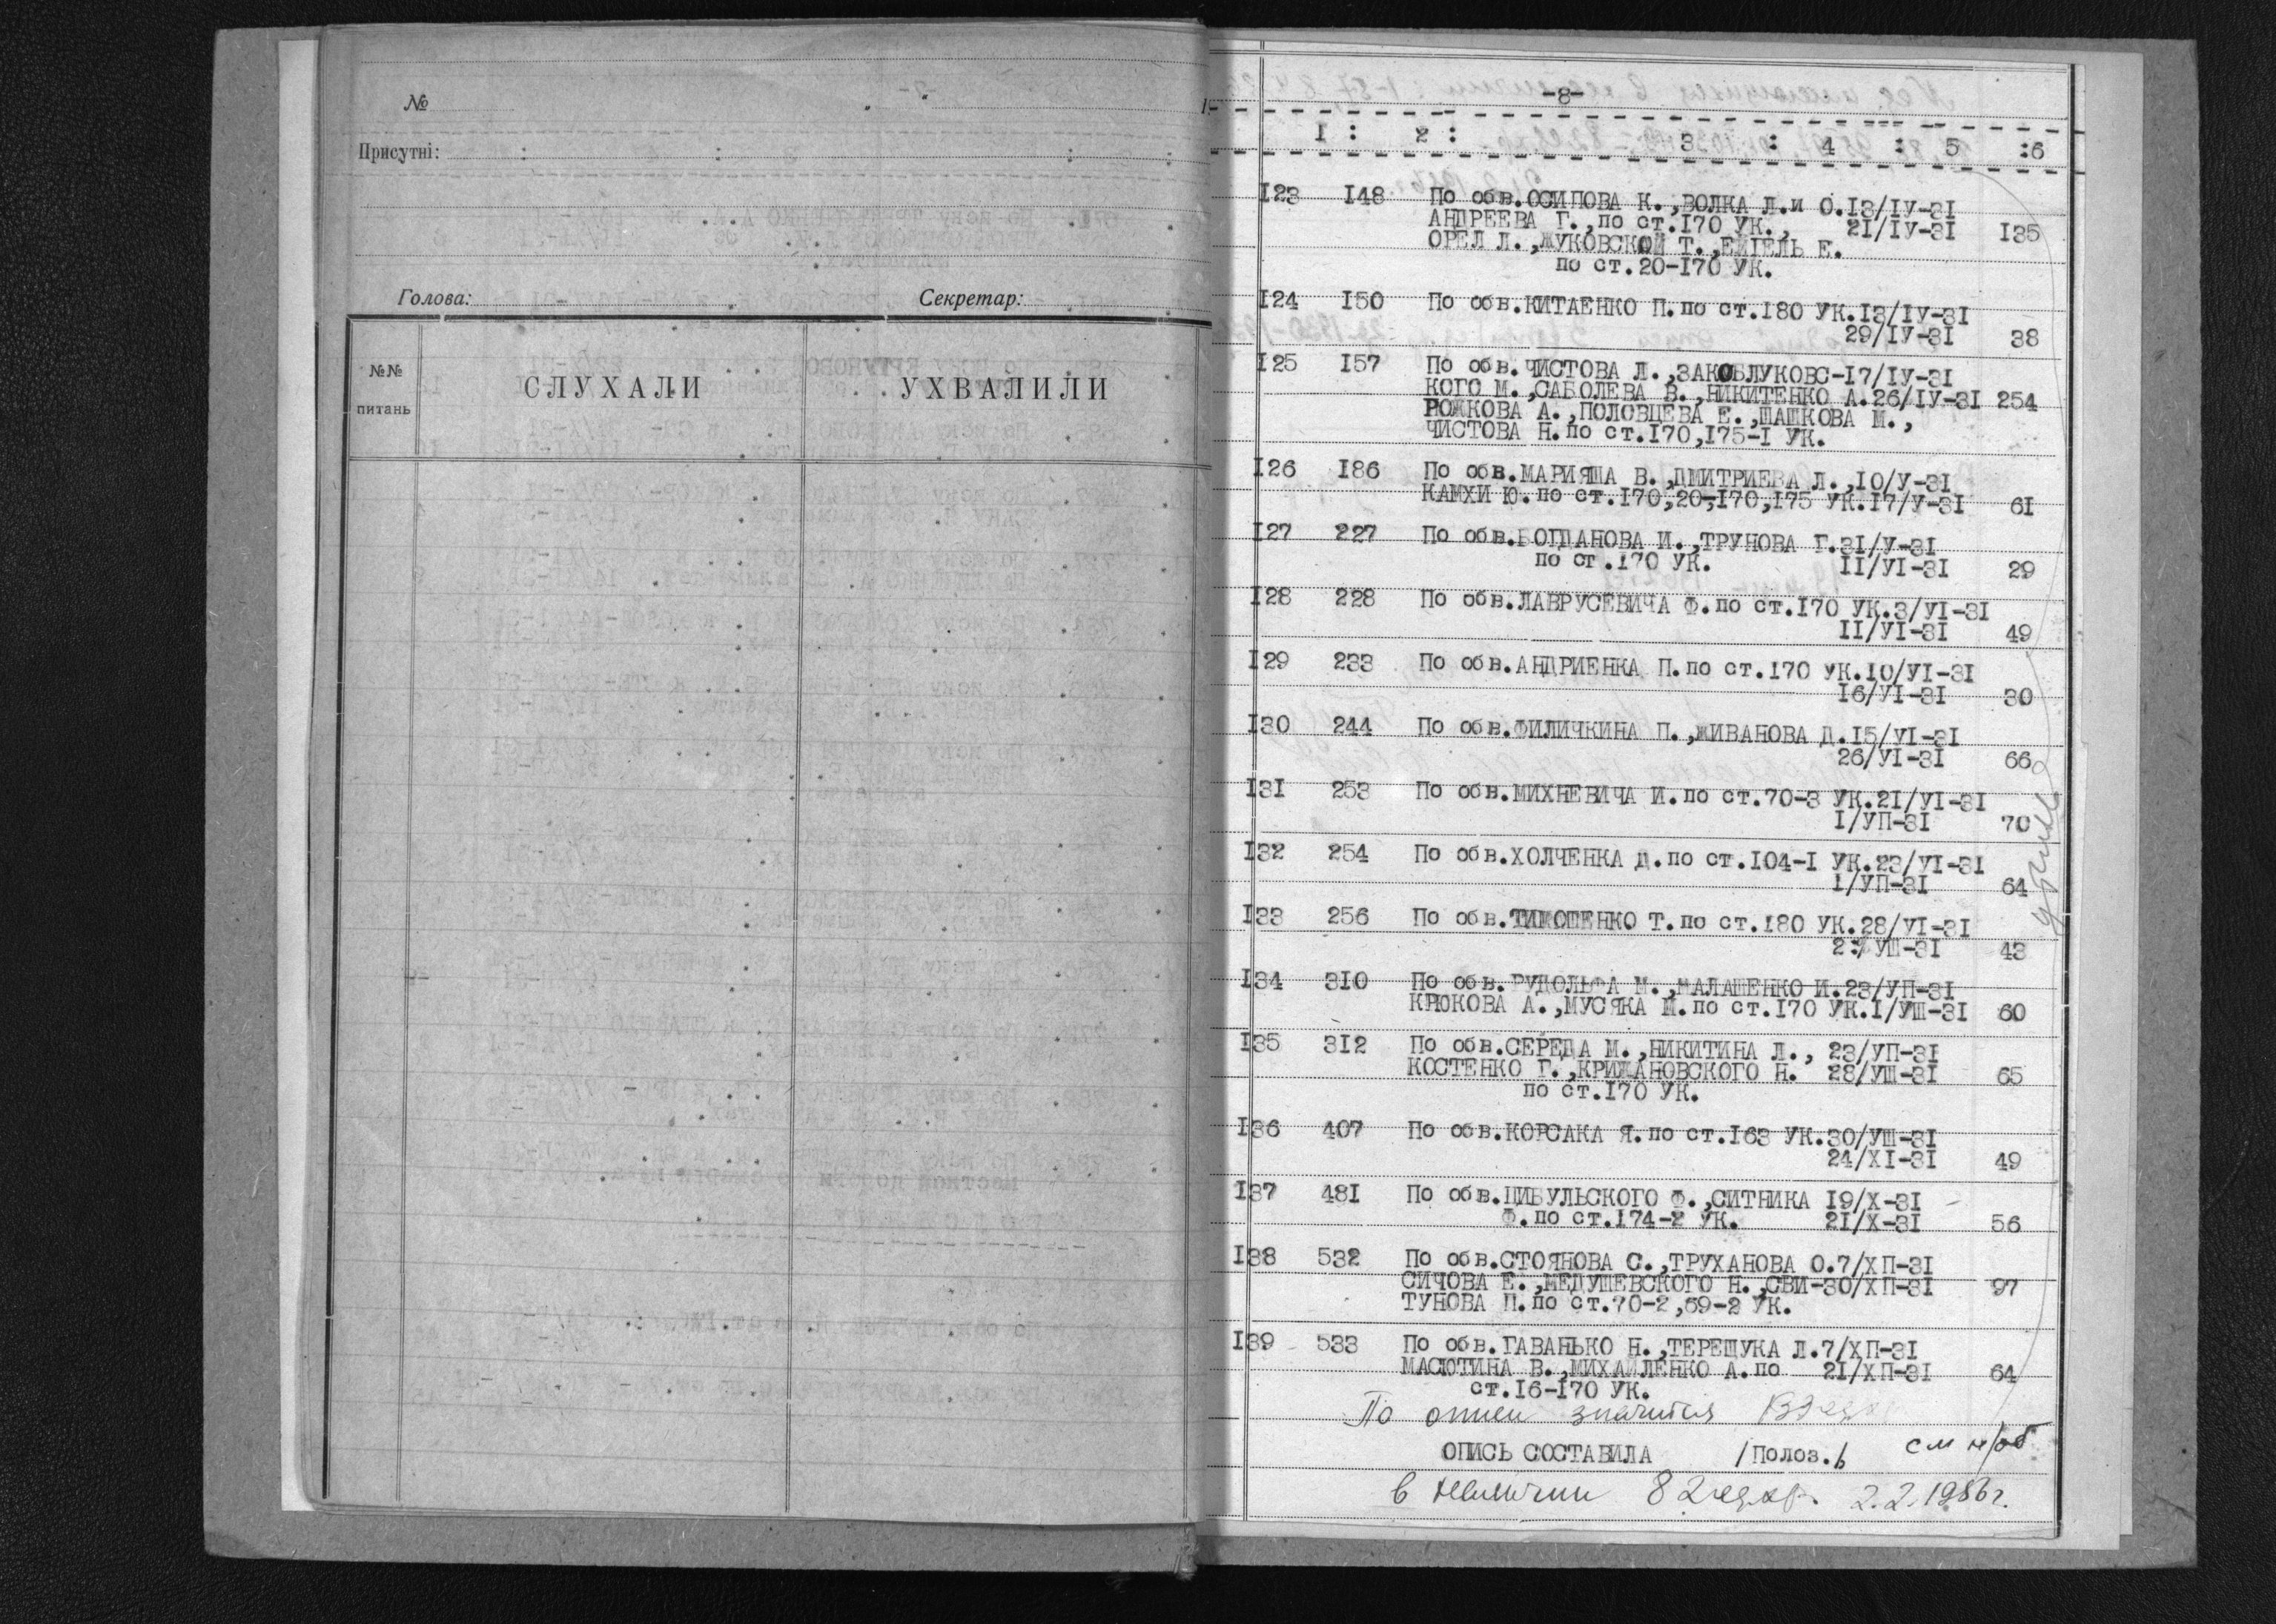 №
Присутні:
Голова: Секретар:
№№ питань
СЛУХАЛИ
УХВАЛИЛИ
-8-
I : 2 : 3 : 4 : 5 :6
I23 I48 По обв.ОСИПОВА К.,ВОЛКА Л.и О.I3/IУ-3I
АНДРЕЕВА Г.,по ст.I70 УК., 2I/IУ-3I I35
ОРЕЛ Л.,ЖУКОВСКОЙ Т.,ЕЙГЕЛЬ Е.
по ст.20-I70 УК.
I24 I50 По обв.КИТАЕНКО П.по ст.I80 УК.I3/IУ-3I
29/IУ-3I 38
I25 I57 По обв.ЧИСТОВА Л.,ЗАКОБЛУКОВС-I7/IУ-3I
КОГО М.,САБОЛЕВА В.,НИКИТЕНКО А.26/IУ-3I 254
РОЖКОВА А.,ПОЛОВЦЕВА Е.,ШАШКОВА М.,
ЧИСТОВА Н.по ст.I70,I75-I УК.
I26 I86 По обв.МАРИЯША В.,ДМИТРИЕВА Л.,I0/У-3I
КАМХИ Ю.по ст.I70,20-I70,I75 УК.I7/У-3I 6I
I27 227 По обв.БОГДАНОВА И.,ТРУНОВА Г.3I/У-3I
по ст.I70 УК. II/УI-3I 29
I28 228 По обв.ЛАВРУСЕВИЧА Ф.по ст.I70 УК.3/УI-3I
II/УI-3I 49
I29 233 По обв.АНДРИЕНКА П.по ст.I70 УК.I0/УI-3I
I6/УI-3I 30
I30 244 По обв.ФИЛИЧКИНА П.,ЖИВАНОВА Д.I5/УI-3I
26/УI-3I 66
I3I 253 По обв.МИХНЕВИЧА И.по ст.70-3 УК.2I/УI-3I
I/УП-3I 70
I32 254 По обв.ХОЛЧЕНКА Д.по ст.I04-I УК.23/УI-3I
I/УП-3I 64
I33 256 По обв.ТИМОШЕНКО Т.по ст.I80 УК.28/УI-3I
УШ-3I 43
I34 3I0 По обв.РУДОЛЬФА М.,МАЛАШЕНКО И.23/УП-3I
КРЮКОВА А.,МУСЯКА М.по ст.I70 УК.I/УШ-3I 60
I35 3I2 По обв.СЕРЕДА М.,НИКИТИНА Л., 23/УП-3I
КОСТЕНКО Г.,КРИЖАНОВСКОГО Н. 28/УШ-3I 65
по ст.I70 УК.
I36 407 По обв.КОРСАКА Я.по ст.I63 УК.30/УШ-3I
24/XI-3I 49
I37 48I По обв.ЦИБУЛЬСКОГО Ф.,СИТНИКА I9/X-3I
Ф.по ст.I74-2 УК. 2I/X-3I 56
I38 532 По обв.СТОЯНОВА С.,ТРУХАНОВА О.7/ХП-3I
СИЧОВА Е.,МЕДУШЕВСКОГО Н.,СВИ-30/ХП-3I 97
ТУНОВА П.по ст.70-2,59-2 УК.
I39 533 По обв.ГАВАНЬКО Н.,ТЕРЕЩУКА Л.7/ХП-3I
МАСЮТИНА В.,МИХАЙЛЕНКО А.по 2I/ХП-3I 64
ст.I6-I70 УК.
По описи значится
ОПИСЬ СОСТАВИЛА /Полоз./ см н/об
в наличии 82 ед.хр. 2.2.1986г.